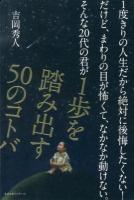 1度きりの人生だから絶対に後悔したくない！
だけど、まわりの目が怖くて、なかなか動けない。
そんな20代の君が
1歩を
踏み出す
50のコトバ
吉岡秀人